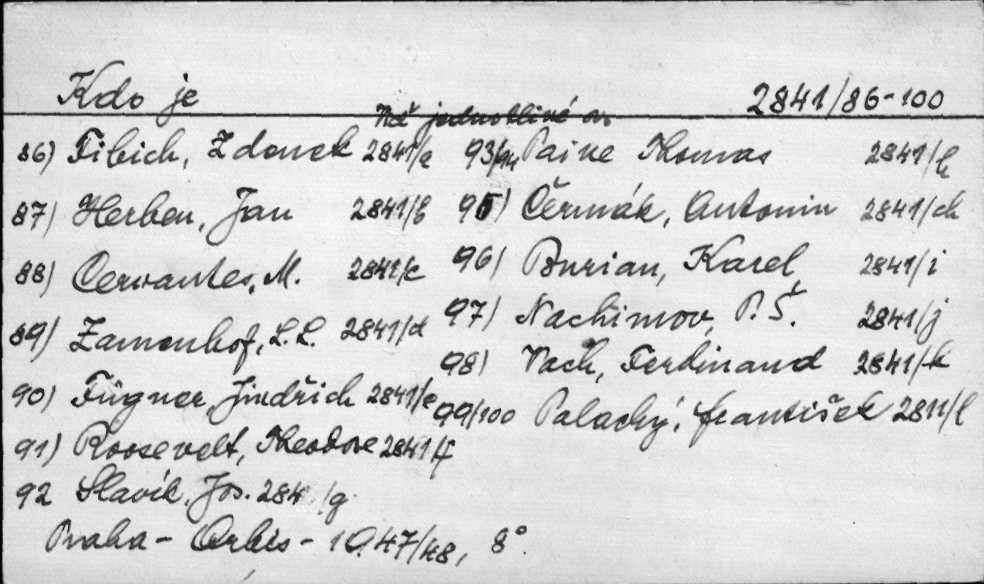 Kdo je 2841/86-100
86) Fibich, Zdenek 2841/a
87) Herben, Jan 2841/b
88) Cervantes, M. 2841/c
89) Zamenhof, L.L. 2841/d
90) Fügner, Jindřich 2841/e
91) Roosevelt, Theodore 2841/f
92 Slavík, Jos. 284 /g
93/94 Paine Thomas 2841/h
95) Čermák, Antonin 2841/ch
96) Burian, Karel 2841/i
97) Nachimov, P. Š. 2841/j
98) Vach, Ferdinand 2841/k
99/100 Palacký, František 2811/l
Praha - Orbis - 1947/48, 8°.